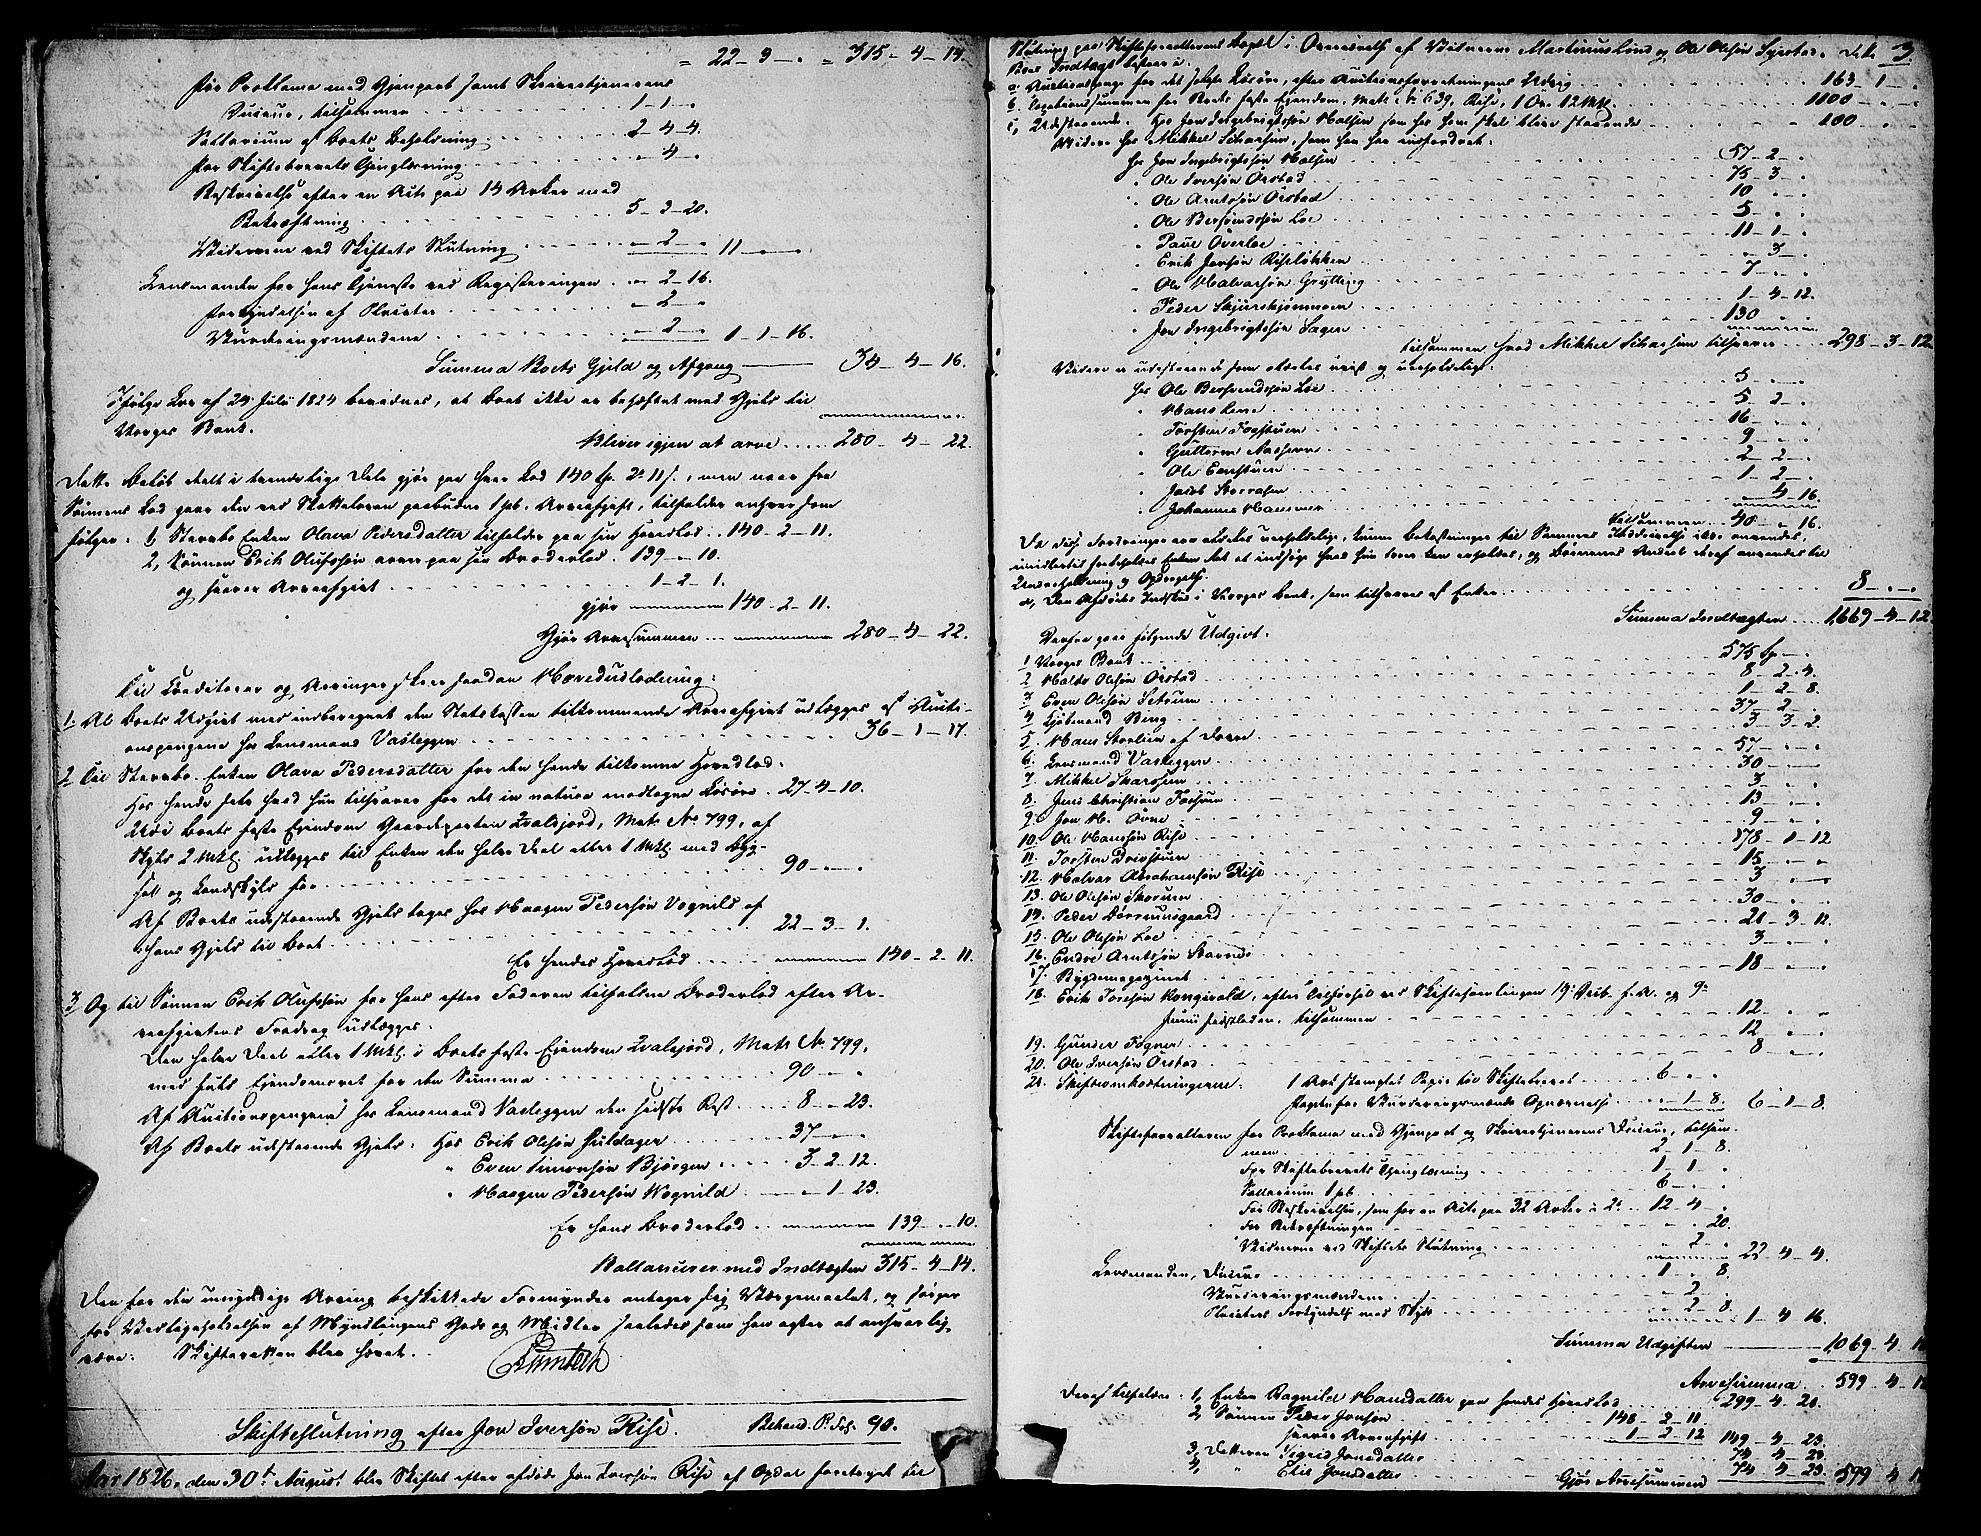 " 22 - 3 - . " 315 - 4 - 14.
for Proklama med Gjenpart samt Skrivertjenerens
Diæure, tilsammen . . . 1 - 1 - .
Sallarium af Boets Beholdning . . . 2 - 4 - 4.
for Skiftebrevets Gjenglæsning . . . " - 4 - .
Beskrivelse efter en Acts paa 14 Arker med
Bekræftning . . . 5 - 3 - 20.
Vidnerne ved Skiftets Slutning . . . " - 2 - . 11 - . - .
Lensmanden for hans Tjeneste ved Registeringen . . . " - 2 - 16.
forkyndelsen af Placater . . . " - 2 - .
Vurderingsmændene . . . " - 2 - . 1 - 1 - 16.
Summa Boets Gjeld og Afgang 34 - 4 - 16.
Ifølge Lov af 24 Juli 1824 bemærkes, at Boet ikke er behæftet med Gjeld til
Norges Bank.
Bliver igjen at arve . . . . 280 - 4 - 22.
Dette Beløb deelt i tvende lige Dele gjør paa hver Lod 140 Sp. 2 11 s., men naar fra
Sønnens Lod gaar den ved Skatteloven paabudne 1 pCt. Arveafgift, tilfalder enhver som
følger: 1, Stervbo Enken Olava Pedersdatter tilfalder paa sin Hovedlod . . 140 - 2 - 11.
2, Sønnen Erik Olufssøn arver paa sin Broderlod . 139 - " - 10.
og svarer Arveafgivt . . . 1 - 2 - 1.
gjør 140 - 2 - 11.
Gjør Arvesummen . . . 280 - 4 - 22.
Til Creditorer og Arvinger skeer saadan Hovedudlodning:
1. Al Boets Udgivt med indberegnet den Statskassen tilkommende Arveafgivt udlægges af Aucti-
onspengene hos Lensmand Vasleggen . . . 36 - 1 - 17.
2. Til Stervbo-Enken Olava Pedersdatter for den hende tilkomne Hovedlod:
Hos hende selv hvad hun tilsvarer for det in natura modtagne Løsøre . 27 - 4 - 10.
Udi Boets faste Eiendom Gaardeparten Qvalsjord, Matr. No. 799, af
Skyld 2 Mkl. udlægges til Enken den halve Deel eller 1 Mkl. med Byg-
sel og Landskyld for . . . 90 - . - .
Af Boets udstaaende Gjeld tages hos Haagen Pedersøn Vognild af
hans Gjeld til Boet . . . 22 - 3 - 1.
Er hendes Hovedlod . . . 140 - 2 - 11.
3. Og til Sønnen Erik Olufssøn for hans efter Faderen tilfaldne Broderlod efter Ar-
veafgivtens Fradrag udlægges:
Den halve Deel eller 1 Mkl. i Boets faste Eiendom Qvalsjord, Matr. No. 799,
med fuld Eiendomsret for den Summa . . . 90 - . - .
Af Auctionspengene hos Lensmand Vasleggen den sidste Rest . . . . 8 - " - 23.
Af Boets udstaaende Gjeld: Hos Erik Olsøn Huldager . . . 37 - . - .
" Even Simonsøn Bjørgen . . . . 3 - 2 - 12.
" Haagen Pedersøn Wognild . . . " - 1 - 23.
Er hans Broderlod . . 139 - . - 10.
Ballancerer med Indtægten 315 - 4 - 14.
Den for den umyndige Arving beskikkede Formynder antager sig Værgemaalet, og sørger
for Vedligeholdelsen af Myndlingens Gods og Midler saaledes som han agter at ansvarlig
være. Skifteretten blev hævet.
Skifteslutning efter Jon Iversøn Rise. Behand. P. Fol. 90.
Aar 1826, den 30te August blev Skiftet efter afdøde Jon Iversøn Rise af Opdal foretaget til
3.
Slutning paa Skifteforvalterens Bopæl i Overværelse af Vidnerne Martinus Lund og Ole Olsøn Tyrstu. Dette
Boes Indtægt bestaar i:
a, Auctionspenge for det solgte Løsøre, efter Auctionsforretningens Udvig . . . 163 - 1 - .
b, Taxationssummen for Boets faste Eiendom, Matr. No. 639, Rise, 1 Øre 12 Mkl. . . . 1100 - . - .
c, Udestaaende. Hos Jon Ingebrigtsøn Halsen som hos ham skal blive staaende . . . 100 - . - .
Videre hos Mikkel Skarsøm, som han har indfordret:
hos Jon Ingebrigtsøn Halsen . . . 57 - 2 - .
" Ole Iversøn Orstad . . . 75 - 3 - .
" Ole Arntsøn Orstad . . . 10 - . - .
" Ole Bersvendsøn Loe . . . 5 - . - .
" Paul Overloe . . . 11 - 1 - .
" Erik Jonsøn Riseløkken . . . " - 3 - .
" Ole Halvorsøn Grytting . . . 7 - . - .
" Peder Skjørstjønmoen . . . 1 - 4 - 12.
" Jon Ingebrigtsøn Sager . . . 130 . .
tilsammen hvad Mikkel Skarsem tilsvarer . . . 298 - 3 - 12.
Videre er udestaaende som ansees uvist og uerholdeligt:
hos Ole Bersvendsøn Loe . . . 5 - . - .
" Hans Lene . . . 5 - 2 - .
" Torsten Torstuen . . . 16 - . - .
" Guttorm Aashaven . . . 9 - . - .
" Ole Engstuen . . . 2 - 2 - .
" Jacob Storaasen . . . 1 - 2 - .
" Johannes Hammer . . . " - 4 - 16.
tilsammen . . 40 - " - 16.
Da disse Fordringer ansees uerholdelige, kunne Bekostninger til Sammes Inddrivelse ikke anvendes,
imidlertid forbeholdes Enken Ret at indsøge hvad hun deraf kan erholde, og Børnenes Andeel deraf anvendes til
Underholdning og Opdragelse.
d, Den Afdødes Indskud i Norges Bank, som tilsvares af Enken . . . 8 - . - .
Summa Indtægten . . . . 1669 - 4 - 12.
Derfra gaar følgende Udgivt:
1 Norges Bank . . . 575 Sp - .
2 Haldo Olsøn Orstad . . . 8 - 2 - 4.
3 Even Olsøn Setrum . . . 1 - 2 - 8.
4 Kjøbmand Berg . . . 37 - 2 - .
5. Hans Storlien af Dovre . . . 3 - 3 - 2.
6. Lensmand Vasleggen . . . 57 - . - .
7. Mikkel Skarsem . . . 30 - . - .
8. Jens Christian Torsuun . . . 3 - . - .
9. Jon H. Orne . . . 13 - . - .
10. Ole Hansøn Rise . . . 9 - . - .
11. Torsten Drivstuen . . . 178 - 1 - 12
12. Halvor Abrahamsøn Rise . . . 15 - . - .
13. Ole Olsøn Skorem . . . 3 - . - .
14. Peder Dørrumsgaard . . . 30 - . - .
15. Ole Olsøn Loe . . . 21 - 3 - 12.
16. Endre Arntsøn Stavnes . . . 3 - . - .
17. Bygdemagazinet . . . 18 - . - .
18. Erik Toresøn Kongsvold, efter Tilførsel ved Skiftesamlingen 19 Febr. f. A. og 9
Junii sidstleden, tilsammen . . . 12 - . - .
19. Gunder Fagner . . . 12 - . - .
20. Ole Iversøn Orstad . . . 8 - . - .
21. Skifteomkostningerne: 1 Ark stemplet Papir til Skiftebrevet . . . . 6 - . - .
Papir for Vurderingsmænds Opnævnelse . . . - 1 - 8. 6 - 1 - 8.
Skifteforvalteren for Proklama med Gjenpart og Skrivertjenerens Diæure, tilsam-
men . . . 2 - 1 - 8.
For Skiftebrevets Gjenglæsning . . . 1 - 1 - .
Sallarium 1 pC. . . . 6 - . - .
For Beskrivelse, som for en Acts paa 32 Arker à 2 . . . 12 - 4 .
For Bekræftningen . . . " - . 20.
Vidnerne ved Skiftets Slutning . . . . 2 . 22 - 4 - 4.
Lensmanden, Diæure . . . 1 - . 8.
Vurderingsmændene . . . - 2 .
Placaters Forkyndelse med Skyds . . . - 2 8. 1 - 4 - 16.
Summa Udgiften 1069 - 4 -
Arvesumma . . 599 - 4 - 12
Deraf tilfalder: 1, Enken Ragnild Hansdatter paa hendes Hovedlod . . . 299 - 4 - 21.
2, Sønnen Peder Jonsøn . . . 148 - 2 - 11.
svarer Arveafgift . . . 1 - 2 - 12 149 - 4 - 23.
3, Datteren Sigrid Jonsdatter . . . 74 4 - 23.
4, " Eli Jonsdatter . . . 74 4 - 23.
Gjør Arvesummen 599 - 4